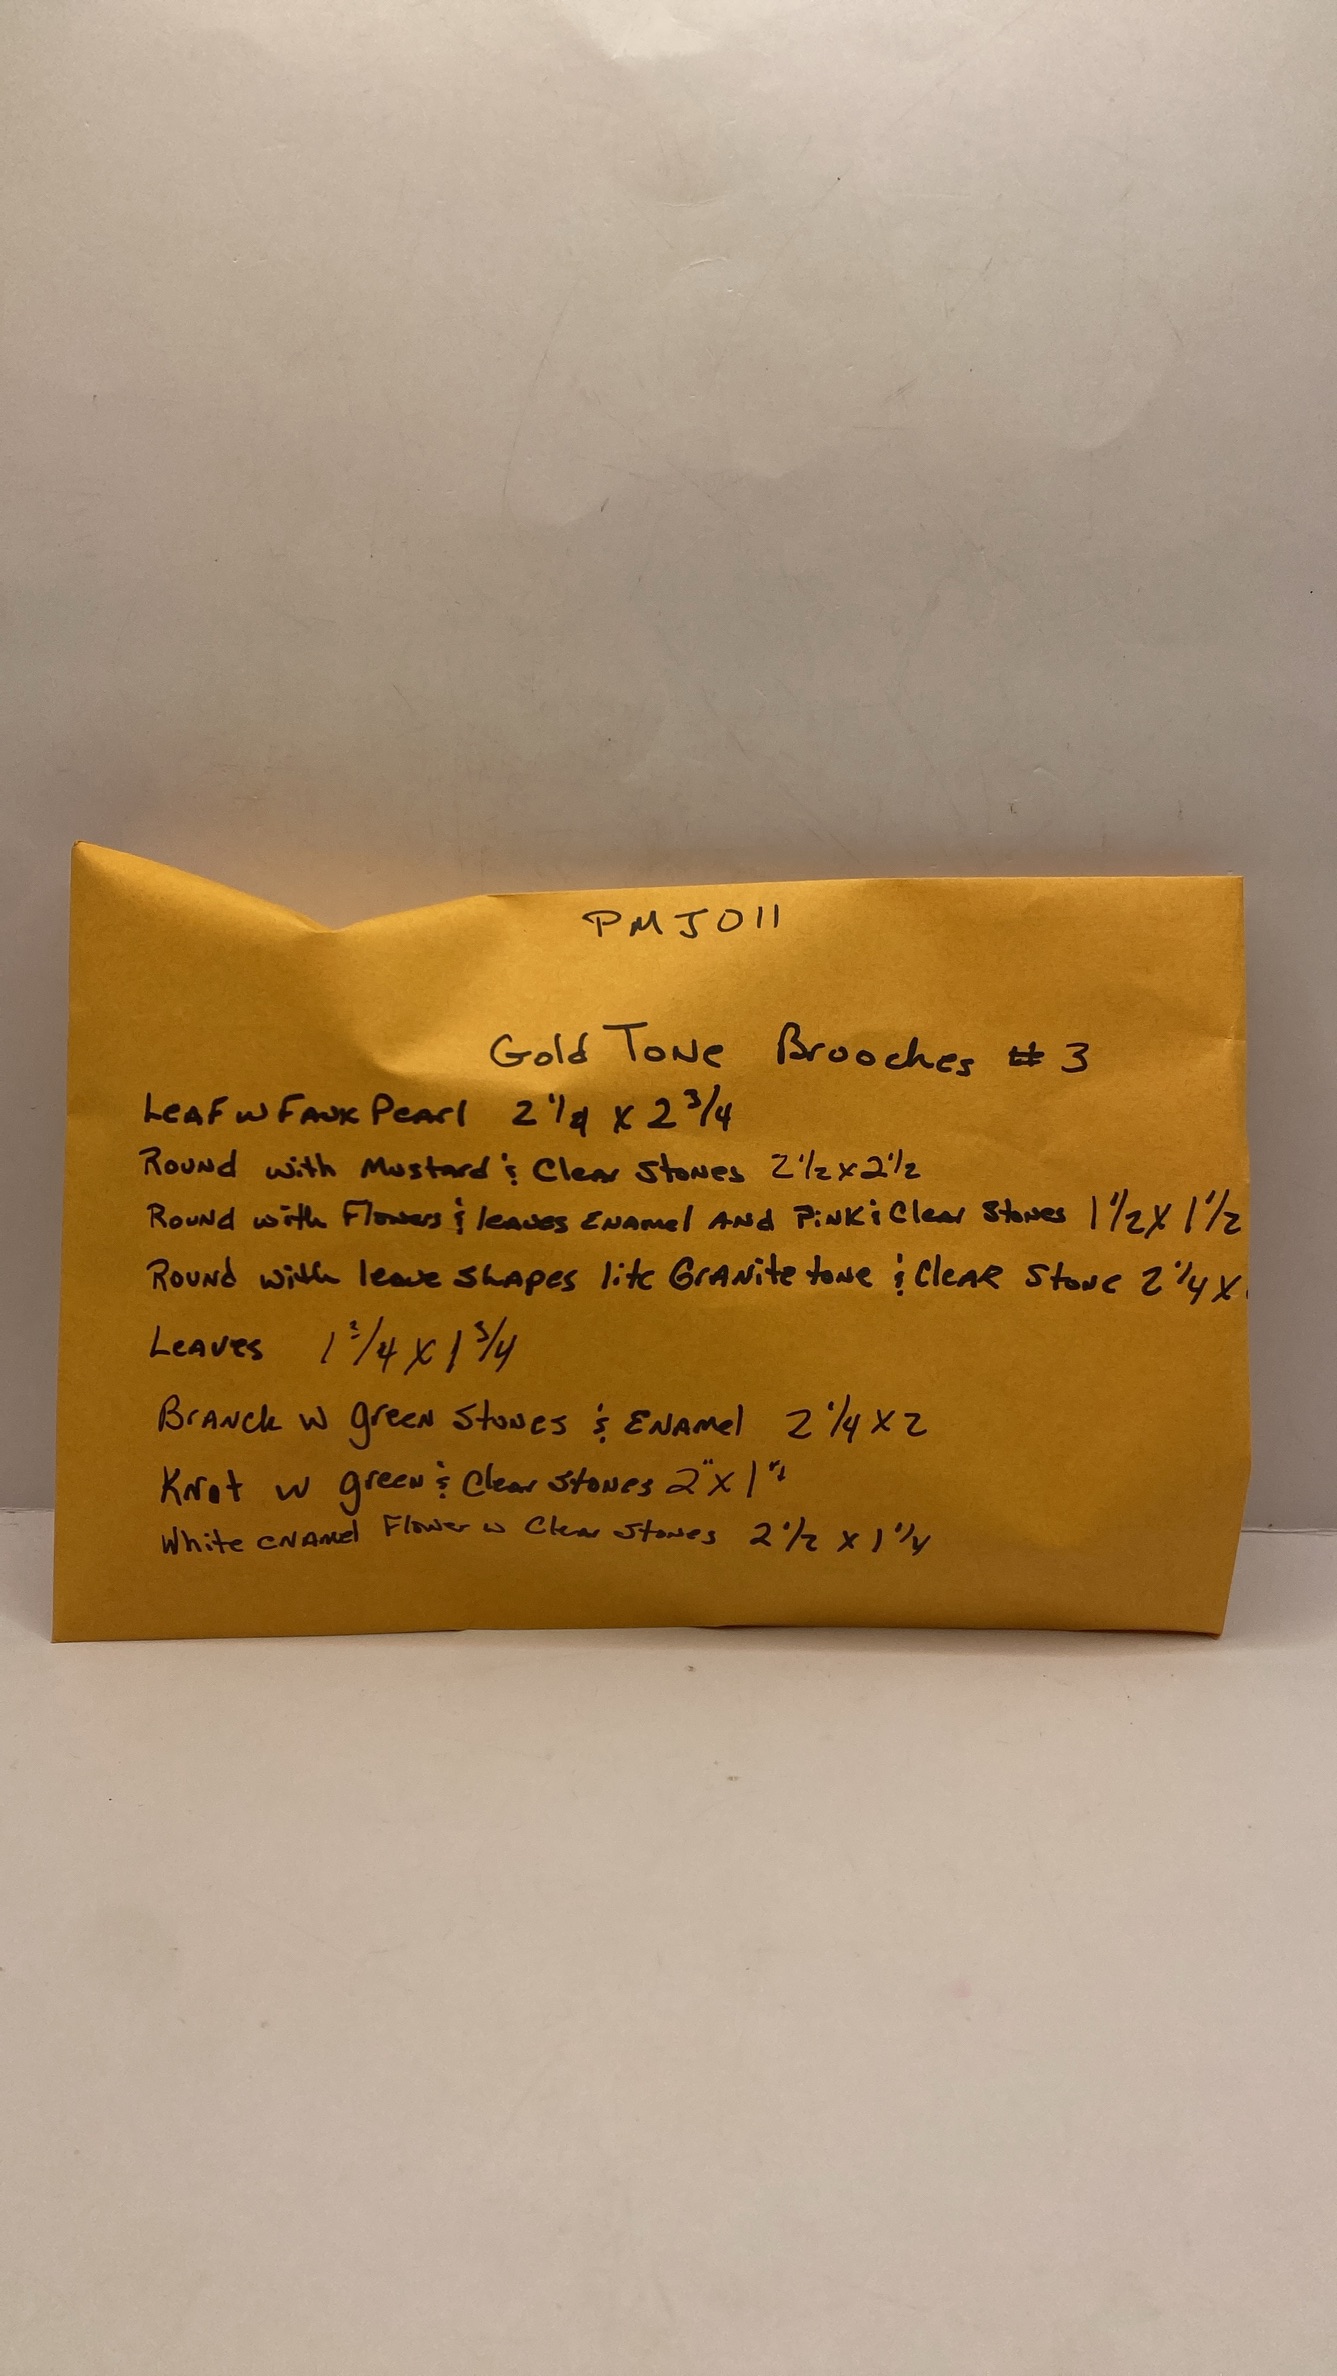 PMJ011
Gold Tone Brooches # 3
Leaf w Faux Pearl 2 1/4 x 2 3/4
Round with Mustard & Clear Stones 2 1/2 x 2 1/2
Round with Flowers & leaves Enamel And Pink & Clear Stones 1 1/2 x 1 1/2
Round with leave shapes lite Granite tone & Clear Stone 2 1/4 x
Leaves 1 3/4 x 1 3/4
Branch w green Stones & Enamel 2 1/4 x 2
Knot w green & Clear Stones 2" x 1"
White enamel Flower w Clear Stones 2 1/2 x 1 1/4